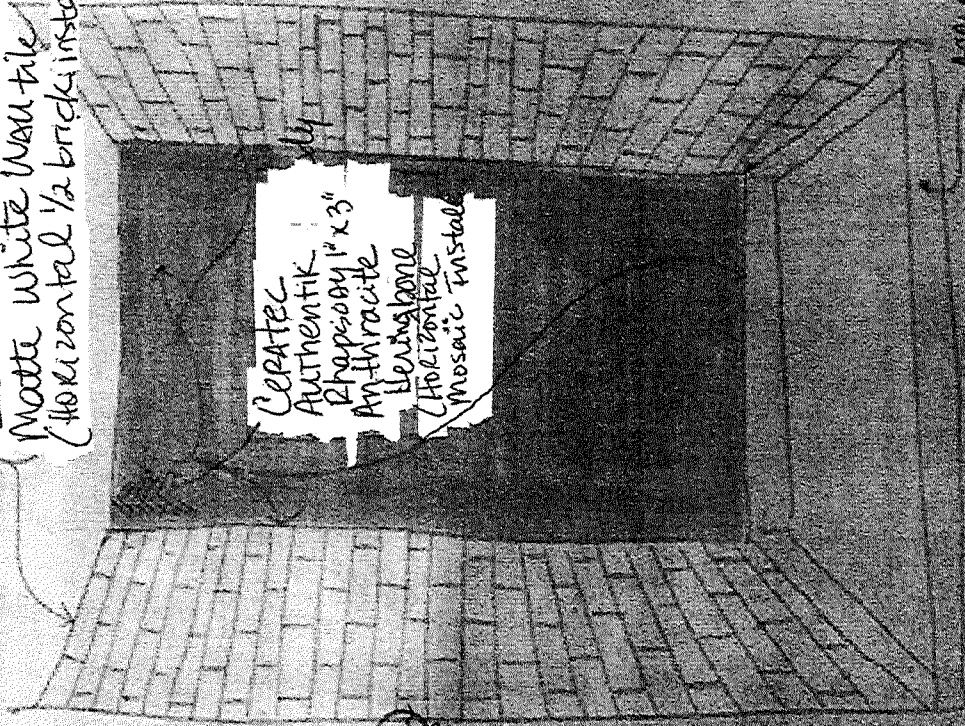 Matte White Wall tile
(Horizontal 1/2 brick insta
Ceratec
Authentik
Rhapsody 1" x 3"
Anthracite
Heringbone
(Horizontal
Mosaic Install